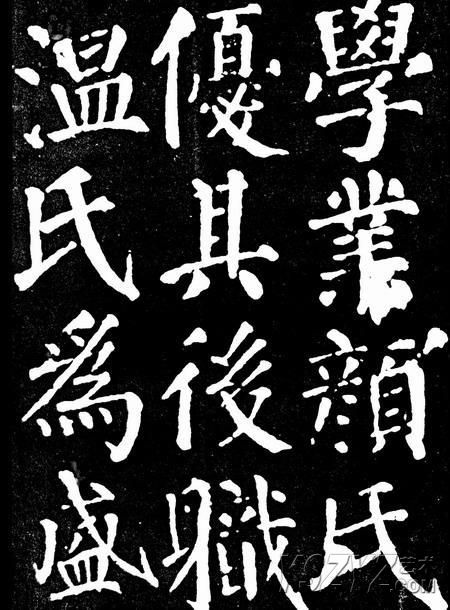 學業顏氏
優其後職
溫氏為盛